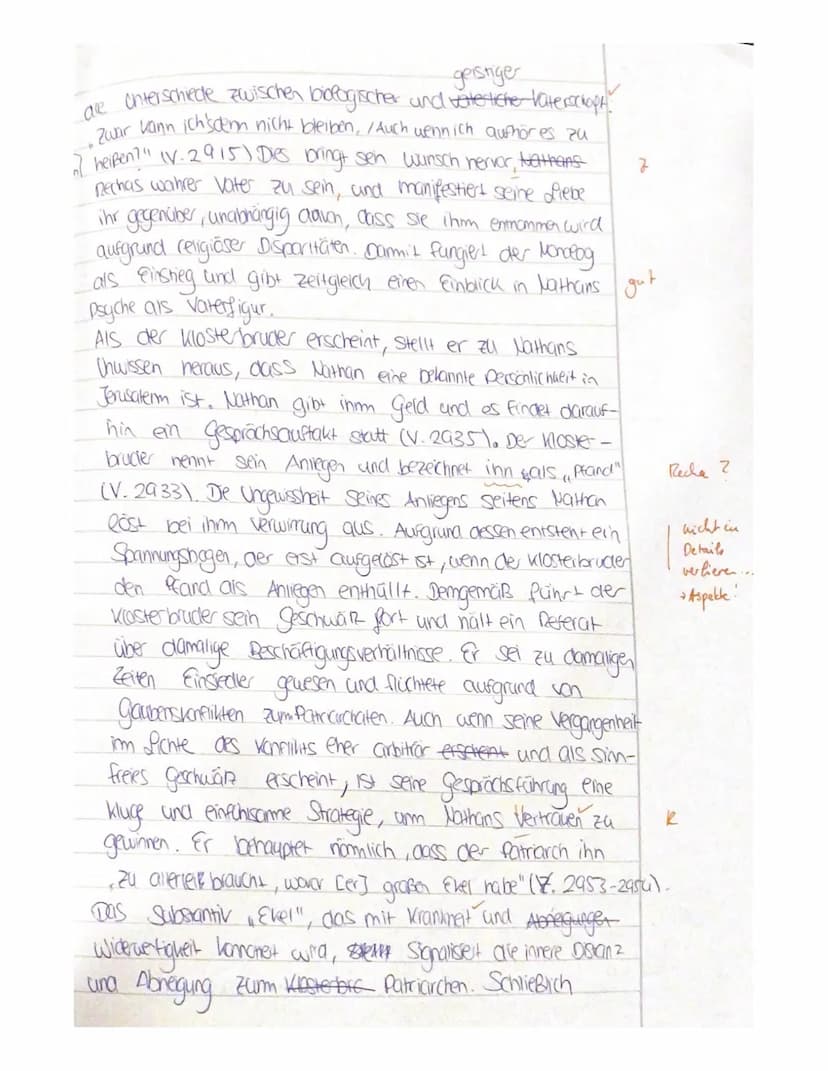 geistiger
die Unterschiede zwischen biologischer und väterliche Vaterschaft.
„Zwar kann ich's denn nicht bleiben, / Auch wenn ich aufhör es zu
heißen?" (V. 2915) Dies bringt sein Wunsch hervor, Nathans Z
Rechas wahrer Vater zu sein, und manifestiert seine Liebe
ihr gegenüber, unabhängig davon, dass sie ihm entnommen wird
aufgrund religiöser Disparitäten. Damit fungiert der Monolog
als Einstieg und gibt zeitgleich einen Einblick in Nathans gut
Psyche als Vaterfigur.
Als der Klosterbruder erscheint, stellt er zu Nathans
Unwissen heraus, dass Nathan eine bekannte Persönlichkeit in
Jerusalem ist. Nathan gibt ihm Geld und es findet darauf-
hin ein Gesprächsauftakt statt (V. 2935). Der Kloster-
bruder nennt sein Anliegen und bezeichnet ihn als „Pfand" Recha ?
(V. 2933). Die Ungewissheit seines Anliegens seitens Nathan
löst bei ihm Verwirrung aus. Aufgrund dessen entsteht ein nicht in
Spannungsbogen, der erst aufgelöst ist, wenn der Klosterbruder Details
den Pfand als Anliegen enthüllt. Demgemäß führt der verlieren...
Klosterbruder sein Geschwätz fort und hält ein Referat → Aspekte!
über damalige Beschäftigungsverhältnisse. Er sei zu damaligen
Zeiten Einsiedler gewesen und flüchtete aufgrund von
Gaubenskonflikten zum Patriarchaten. Auch wenn seine Vergangenheit
im Lichte des Konflikts eher arbiträr erscheint und als sinn-
freies Geschwätz erscheint, ist seine Gesprächsführung eine
kluge und einfühlsame Strategie, um Nathans Vertrauen zu R
gewinnen. Er behauptet nämlich, dass der Patriarch ihn
„zu allerlei braucht, wovor [er] großen Ekel habe" (Z. 2953-2954).
Das Substantiv „Ekel", das mit Krankheit und Abneigungen
Widerwertigkeit konnotiert wird, signalisiert die innere Distanz
und Abneigung zum Klosterbru Patriarchen. Schließlich